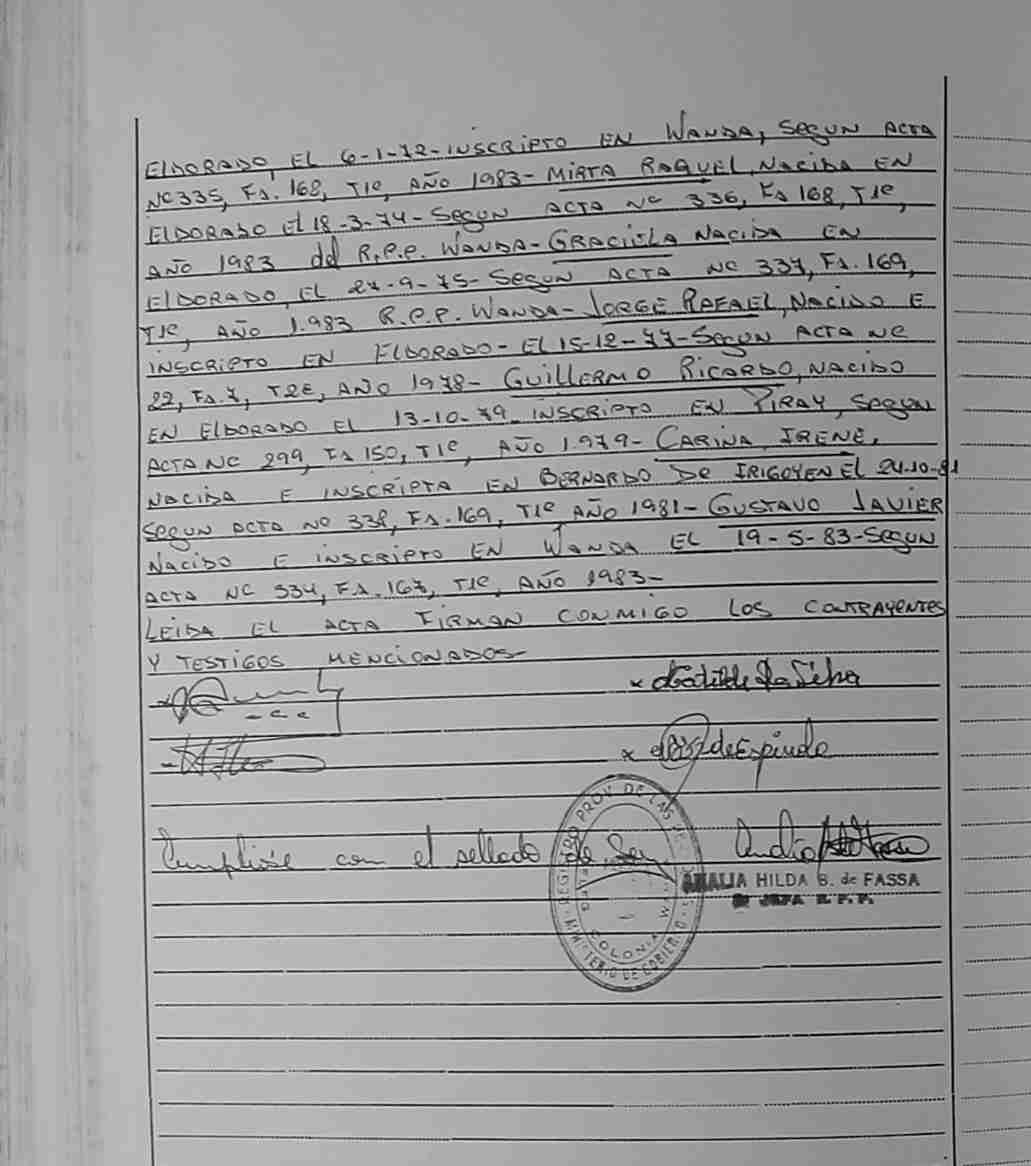 ELDORADO, EL 6-1-72-INSCRIPTO EN WANDA, SEGUN ACTA
Nº 335, Fº. 168, Tº 1º, AÑO 1983- MIRTA RAQUEL, NACIDA EN
ELDORADO El 18-3-74- SEGUN ACTA Nº 336, Fº 168, Tº 1º,
AÑO 1983 del R.P.P. WANDA- GRACIELA NACIDA EN
ELDORADO, EL 27-9-75- SEGUN ACTA Nº 337, Fº. 169,
Tº 1º, AÑO 1.983 R.P.P. WANDA- JORGE RAFAEL, NACIDO E
INSCRIPTO EN ELDORADO- EL 15-12-77- SEGUN ACTA Nº
22, Fº. 7, Tº 2º, AÑO 1978- GUILLERMO RICARDO, NACIDO
EN ELDORADO EL 13-10-79 INSCRIPTO EN PIRAY, SEGUN
ACTA Nº 299, Fº 150, Tº 1º, AÑO 1.979- CARINA IRENE,
NACIDA E INSCRIPTA EN BERNARDO DE IRIGOYEN El 24-10-81
SEGUN ACTA Nº 338, Fº. 169, Tº 1º AÑO 1981- GUSTAVO JAVIER
NACIDO E INSCRIPTO EN WANDA EL 19-5-83-SEGUN
ACTA Nº 334, Fº. 167, Tº 1º, AÑO 1983-
LEIDA EL ACTA FIRMAN CONMIGO LOS CONTRAYENTES
Y TESTIGOS MENCIONADOS-
x Matilde Da Silva
x de Espindola
Cumpliose con el sellado de Ley
REGISTRO PROV. DE LAS
COLONIA WANDA
MINISTERIO DE GOBIERNO
AMALIA HILDA B. de FASSA
JEFA R.P.P.